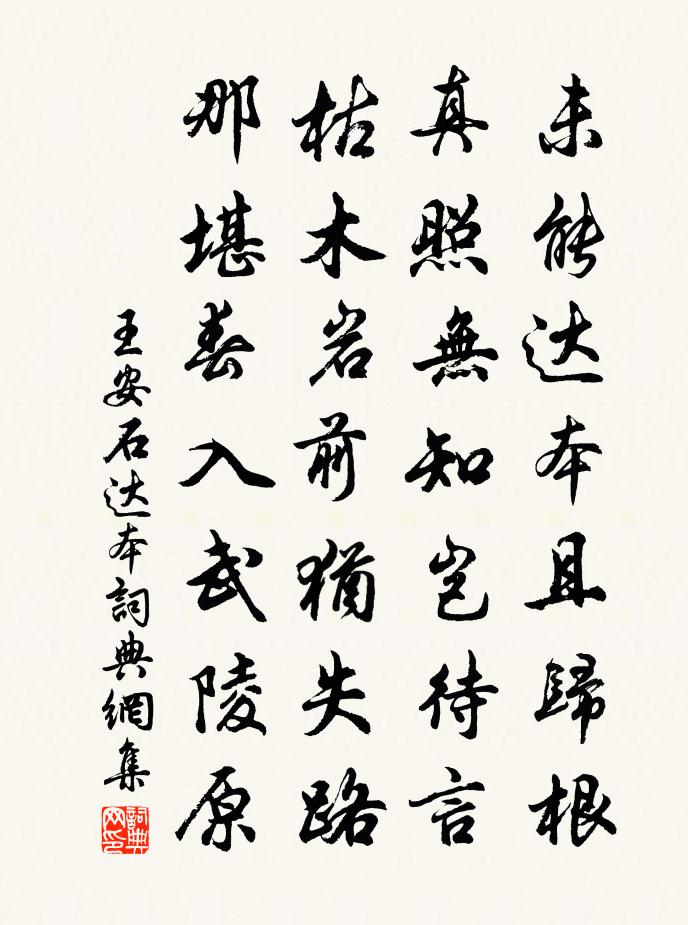 未能达本且歸根
真照無知岂待言
枯木岩前猶失路
那堪春入武陵原
王安石达本詞典網集
詞典网印